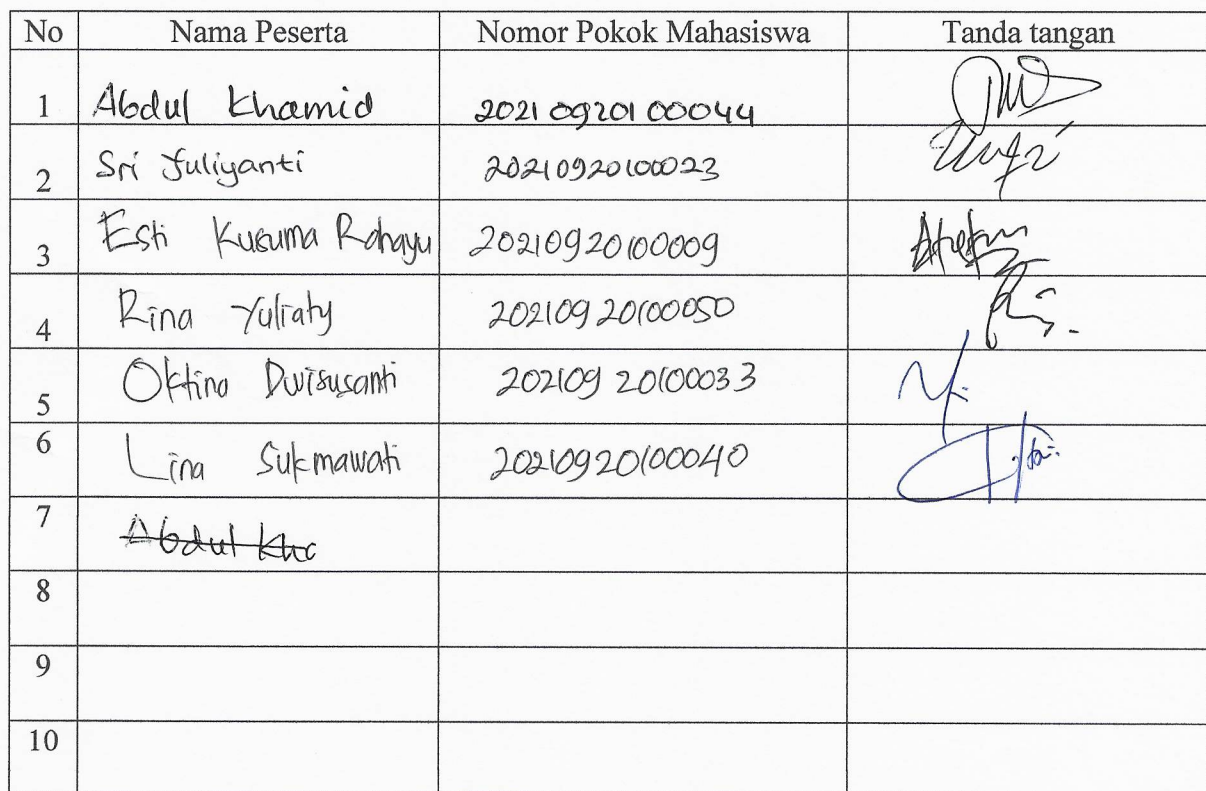 No Nama Peserta Nomor Pokok Mahasiswa Tanda tangan
1 Abdul Khamid 20210920100044
2 Sri Juliyanti 20210920100023
3 Esti Kusuma Rahayu 20210920100009
4 Rina Yuliaty 20210920100050
5 Oktina Dwisusanti 20210920100033
6 Lina Sukmawati 20210920100040
7 Abdul Kha
8
9
10